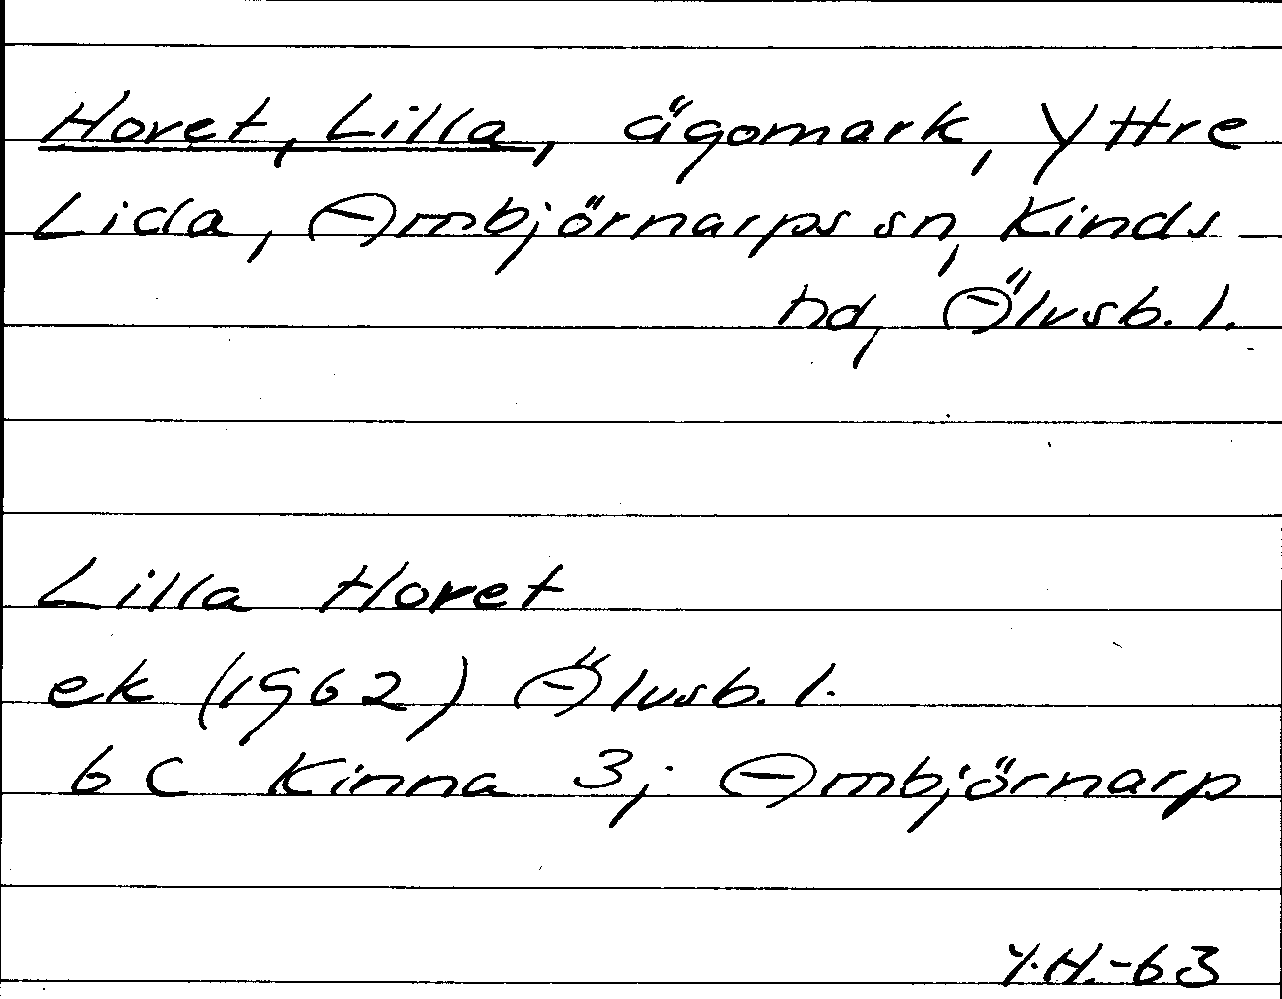 Horet, Lilla, ägomark, Yttre
Lida, Ambjörnarps sn, Kinds
hd, Älvsb. l.
Lilla Horet
ek (1962) Älvsb. l.
6 C Kinna 3j Ambjörnarp
Y.H.-63